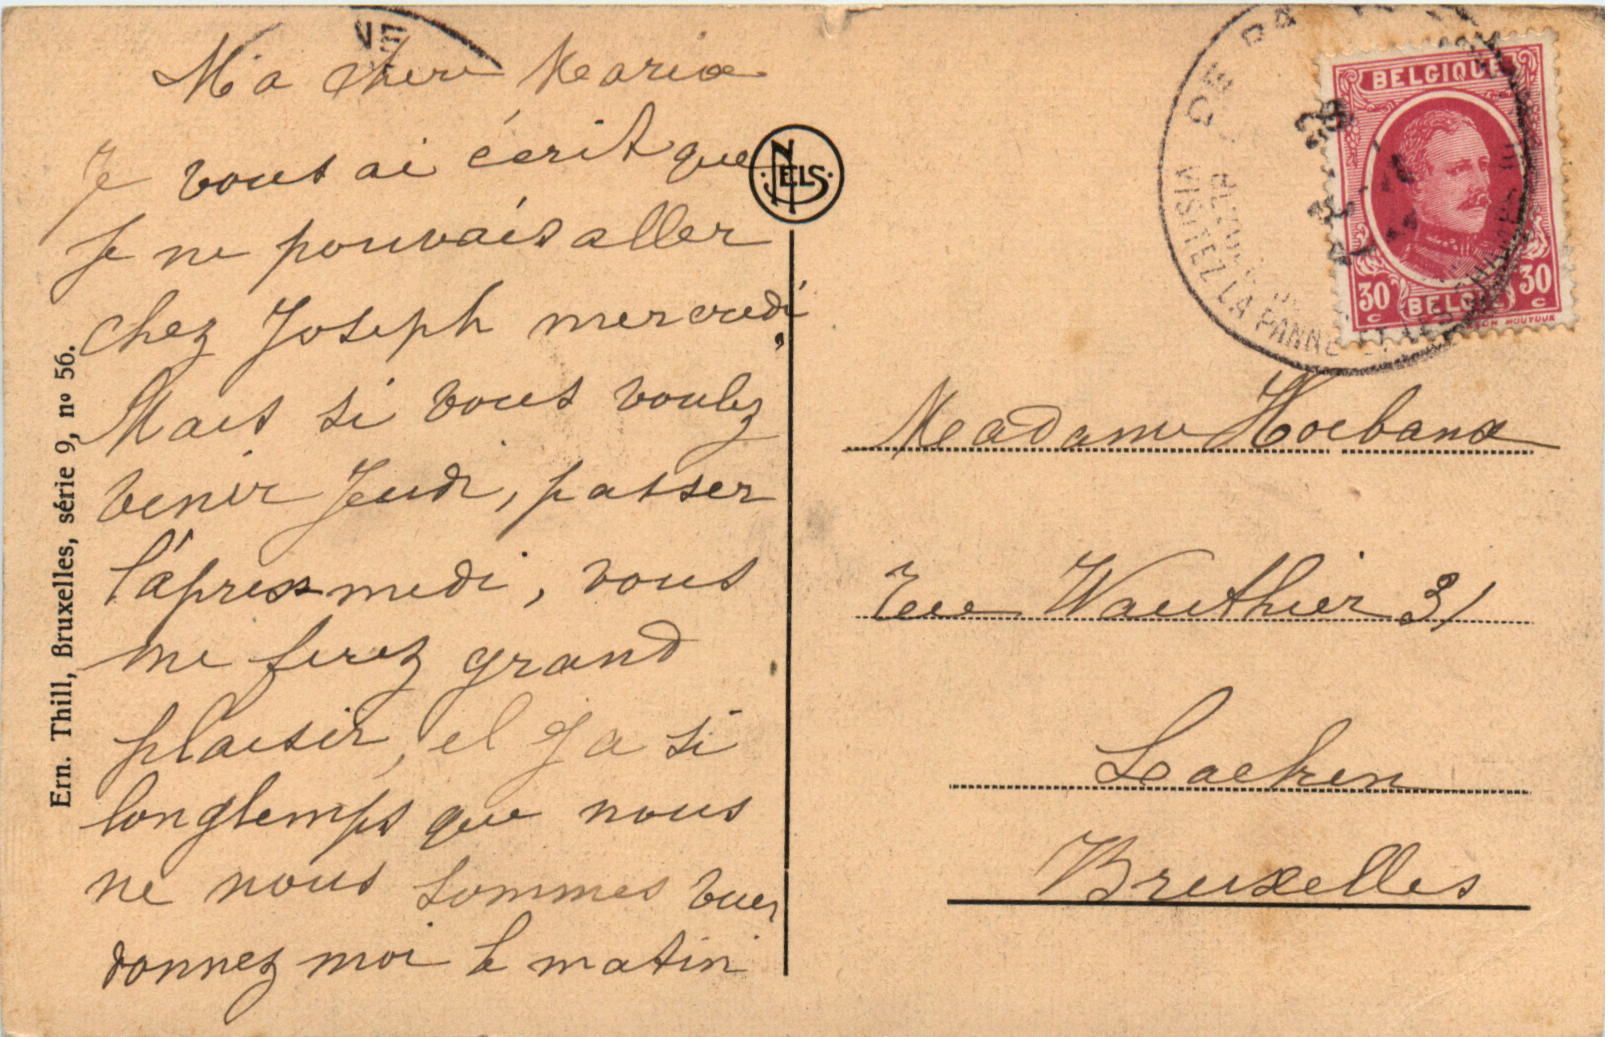 Ma chere Maria
Je vous ai écrit que
je ne pouvais aller
chez Joseph mercredi,
Mais si vous voulez
venir Jeudi, passer
l'apres medi, vous
me ferez grand
plaisir, il y a si
longtemps que nous
ne nous sommes vues
donnez moi le matin
Ern. Thill, Bruxelles, série 9, nº 56.
NELS
DE PA
VISITEZ LA PANNE
BELGIQUE
30 c BELGIË 30 c
HOUYOUX
Madame Hoebanx
Rue Wauthier 31
Laeken
Bruxelles